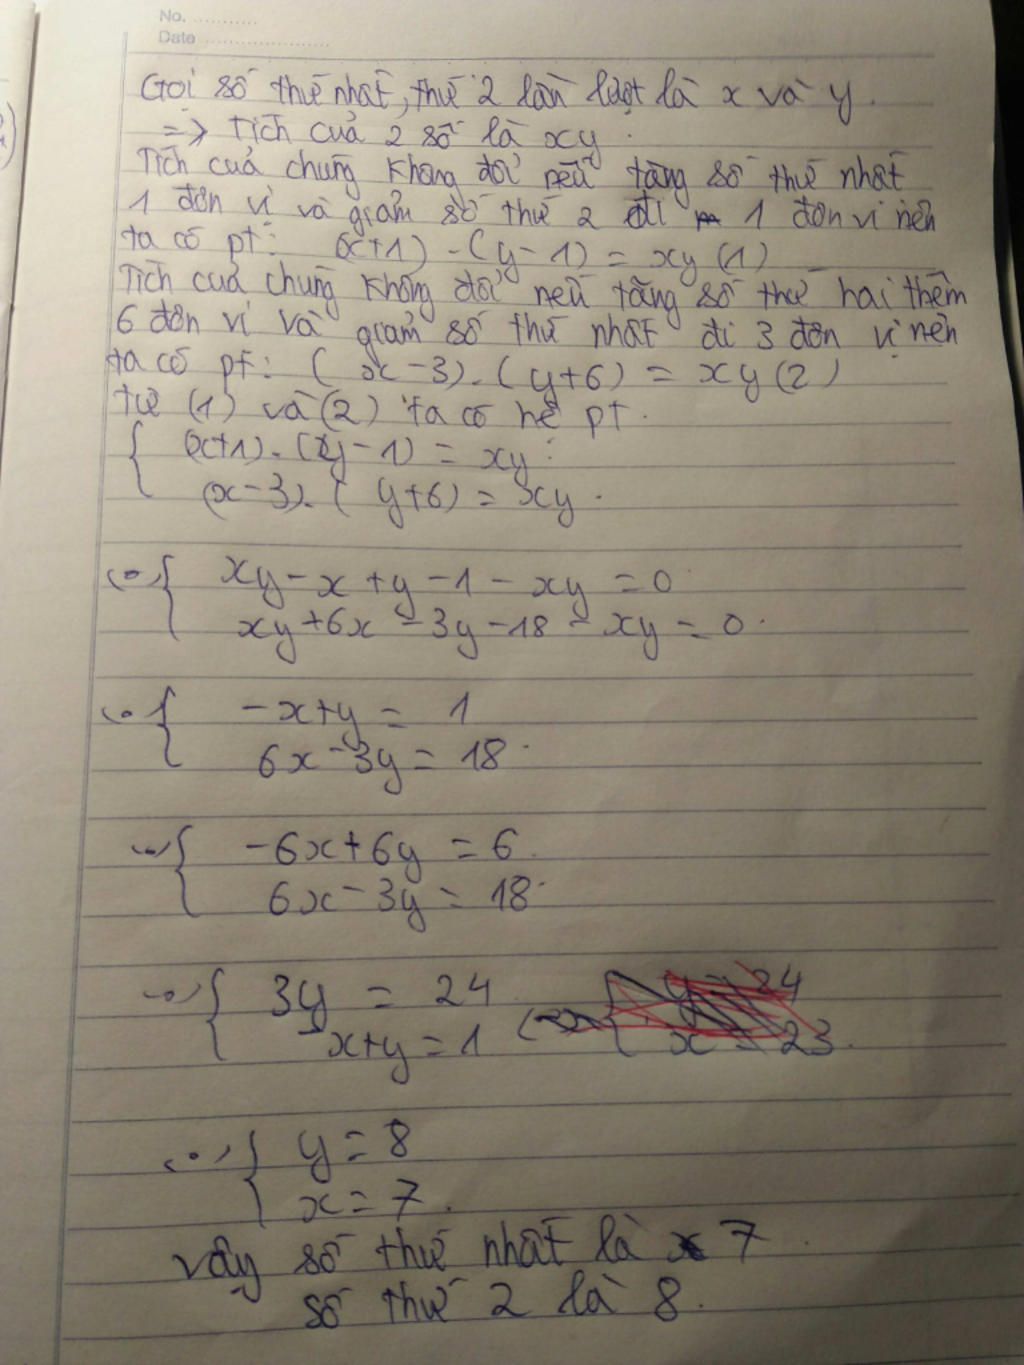 No. ............
Date ........................
Gọi số thứ nhất, thứ 2 lần lượt là x và y.
=> Tích của 2 số là xy.
Tích của chúng không đổi nếu tăng số thứ nhất
1 đơn vị và giảm số thứ 2 đi 1 đơn vị nên
ta có pt: (x+1) - (y-1) = xy (1)
Tích của chúng không đổi nếu tăng số thứ hai thêm
6 đơn vị và giảm số thứ nhất đi 3 đơn vị nên
ta có pt: (x-3).(y+6) = xy (2)
từ (1) và (2) ta có hệ pt.
{ (x+1).(y-1) = xy
(x-3).(y+6) = xy.
<=> { xy-x+y-1-xy = 0
xy+6x-3y-18-xy = 0.
<=> { -x+y = 1
6x-3y = 18.
<=> { -6x+6y = 6.
6x-3y = 18.
<=> { 3y = 24
-x+y = 1
<=> { y = 8
x = 7.
Vậy số thứ nhất là 7.
số thứ 2 là 8.